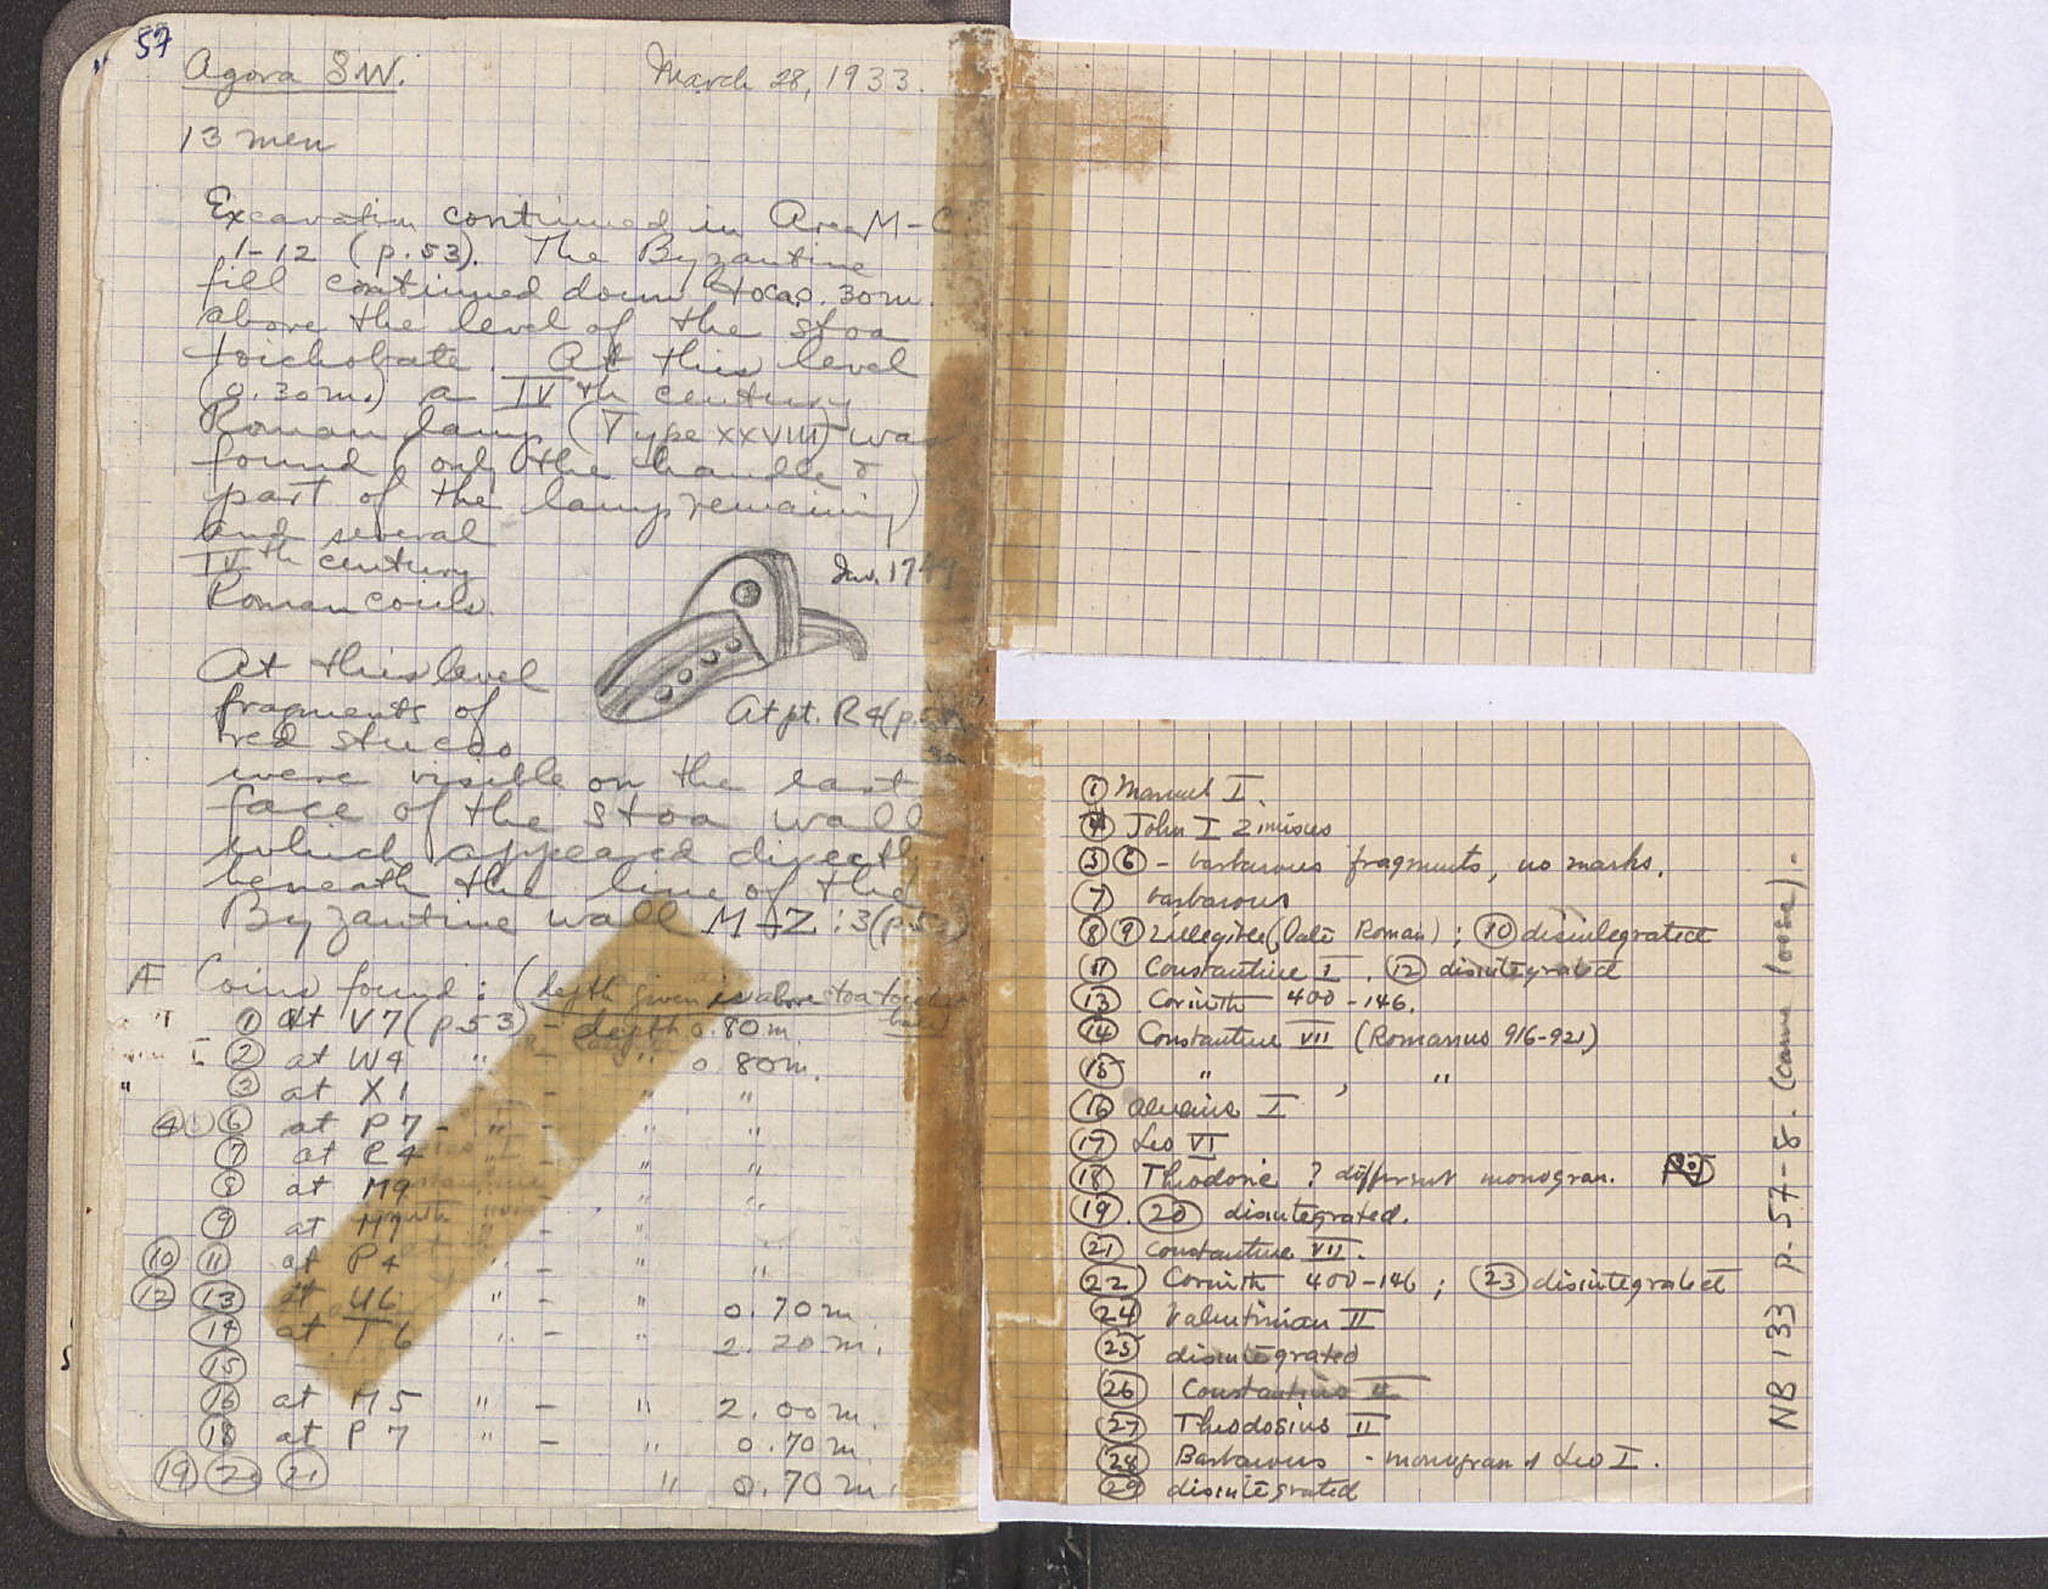 57
Agora S.W. March 28, 1933.
13 men
Excavation continued in Area M-C
1-12 (p.53). The Byzantine
fill continued down to ca 0.30m.
above the level of the stoa
toichobate. At this level
(0.30m.) a IVth century
Roman lamp (Type XXVIII) was
found (only the handle &
part of the lamp remaining)
and several
IVth century
Roman coins.
Inv. 1749
At this level
fragments of
red stucco
At pt. R4 (p.
were visible on the east
face of the stoa wall
which appeared directly
beneath the line of the
Byzantine wall M-Z:3 (p.53)
Coins found: (depth given is above stoa toichobate)
① at V7 (p.53) - depth 0.80m.
I ② at W4 " - " 0.80m.
" ③ at X1 - " "
④ ⑥ at P7 - " - " "
⑦ at R4 " - " "
⑧ at M9 " "
⑨ at M7 - "
⑩ ⑪ at P4 " - "
⑫ ⑬ at U6 " - " 0.70m.
⑭ at T6 " - " 2.20m.
⑮
⑯ at M5 " - " 2.00m.
⑱ at P7 " - " 0.70m.
⑲ ⑳ ㉑ " 0.70m.
① Manuel I.
④ John I Zimisces
⑤ ⑥ - barbarous fragments, no marks.
⑦ barbarous
⑧ ⑨ illegible (Late Roman); ⑩ disintegrated
⑪ Constantine I. ⑫ disintegrated
⑬ Corinth 400-146.
⑭ Constantine VII (Romanus 916-921)
⑮ " , "
⑯ Alexius I
⑰ Leo VI
⑱ Theodoric ? different monogram.
⑲. ⑳ disintegrated.
㉑ Constantine VII.
㉒ Corinth 400-146; ㉓ disintegrated
㉔ Valentinian II
㉕ disintegrated
㉖ Constantius II
㉗ Theodosius II
㉘ Barbarous - monogram of Leo I.
㉙ disintegrated
NB 133 p. 57-8. (came loose).-